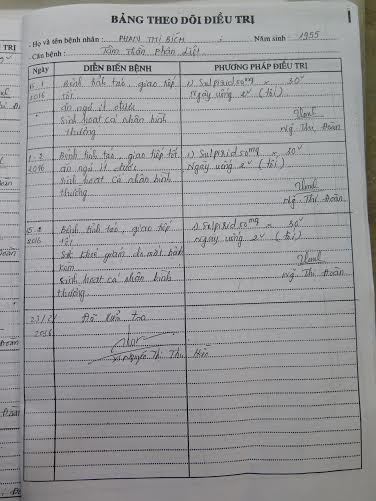 BẢNG THEO DÕI ĐIỀU TRỊ
Họ và tên bệnh nhân: PHAN THỊ BÍCH Năm sinh: 1955
Căn bệnh: Tâm Thần Phân Liệt
Ngày DIỄN BIẾN BỆNH PHƯƠNG PHÁP ĐIỀU TRỊ
2016 Bệnh tỉnh táo, giao tiếp
tốt
ăn ngủ ít được
Sinh hoạt cá nhân bình
thường
1) Sulpirid 50mg x 30v
Ngày uống 2v (tối)
Ng. Thị Đoàn
1.2 2016 Bệnh tỉnh táo, giao tiếp tốt
ăn ngủ ít được
Sinh hoạt cá nhân bình
thường
1) Sulpirid 50mg x 30v
Ngày uống 2v (tối)
Ng. Thị Đoàn
15.2 2016 Bệnh tỉnh táo, giao tiếp
tốt
Sức khoẻ giảm do mắt
kém
Sinh hoạt cá nhân bình
thường
1) Sulpirid 50mg x 30v
Ngày uống 2v (tối)
Ng. Thị Đoàn
2016 Đã kiểm tra
Nguyễn Thị Thu